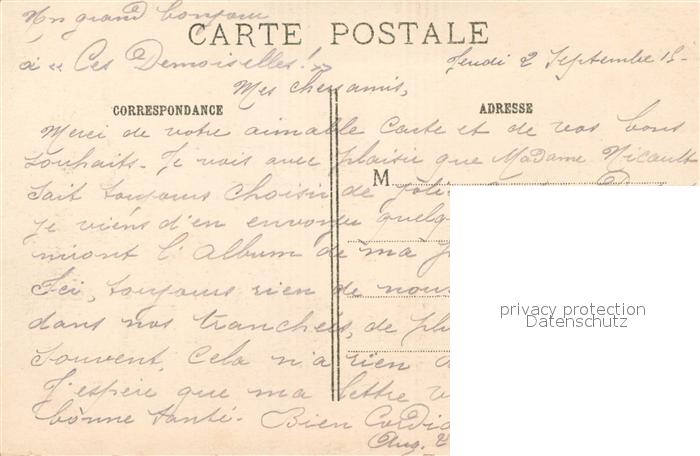 Un grand bonjour
à « Ces Demoiselles ! »
CARTE POSTALE
Jeudi 2 Septembre 15-
Mes chers amis,
CORRESPONDANCE
ADRESSE
Merci de votre aimable Carte et de vos bons
souhaits. Je vois avec plaisir que Madame Nicault
M
sait toujours choisir de
je viens d'en envoyer
miront l'album de ma
Ici, toujours rien de
dans nos tranchées, de
souvent. Cela n'a rien
J'espère que ma lettre
bonne santé. Bien
privacy protection
Datenschutz